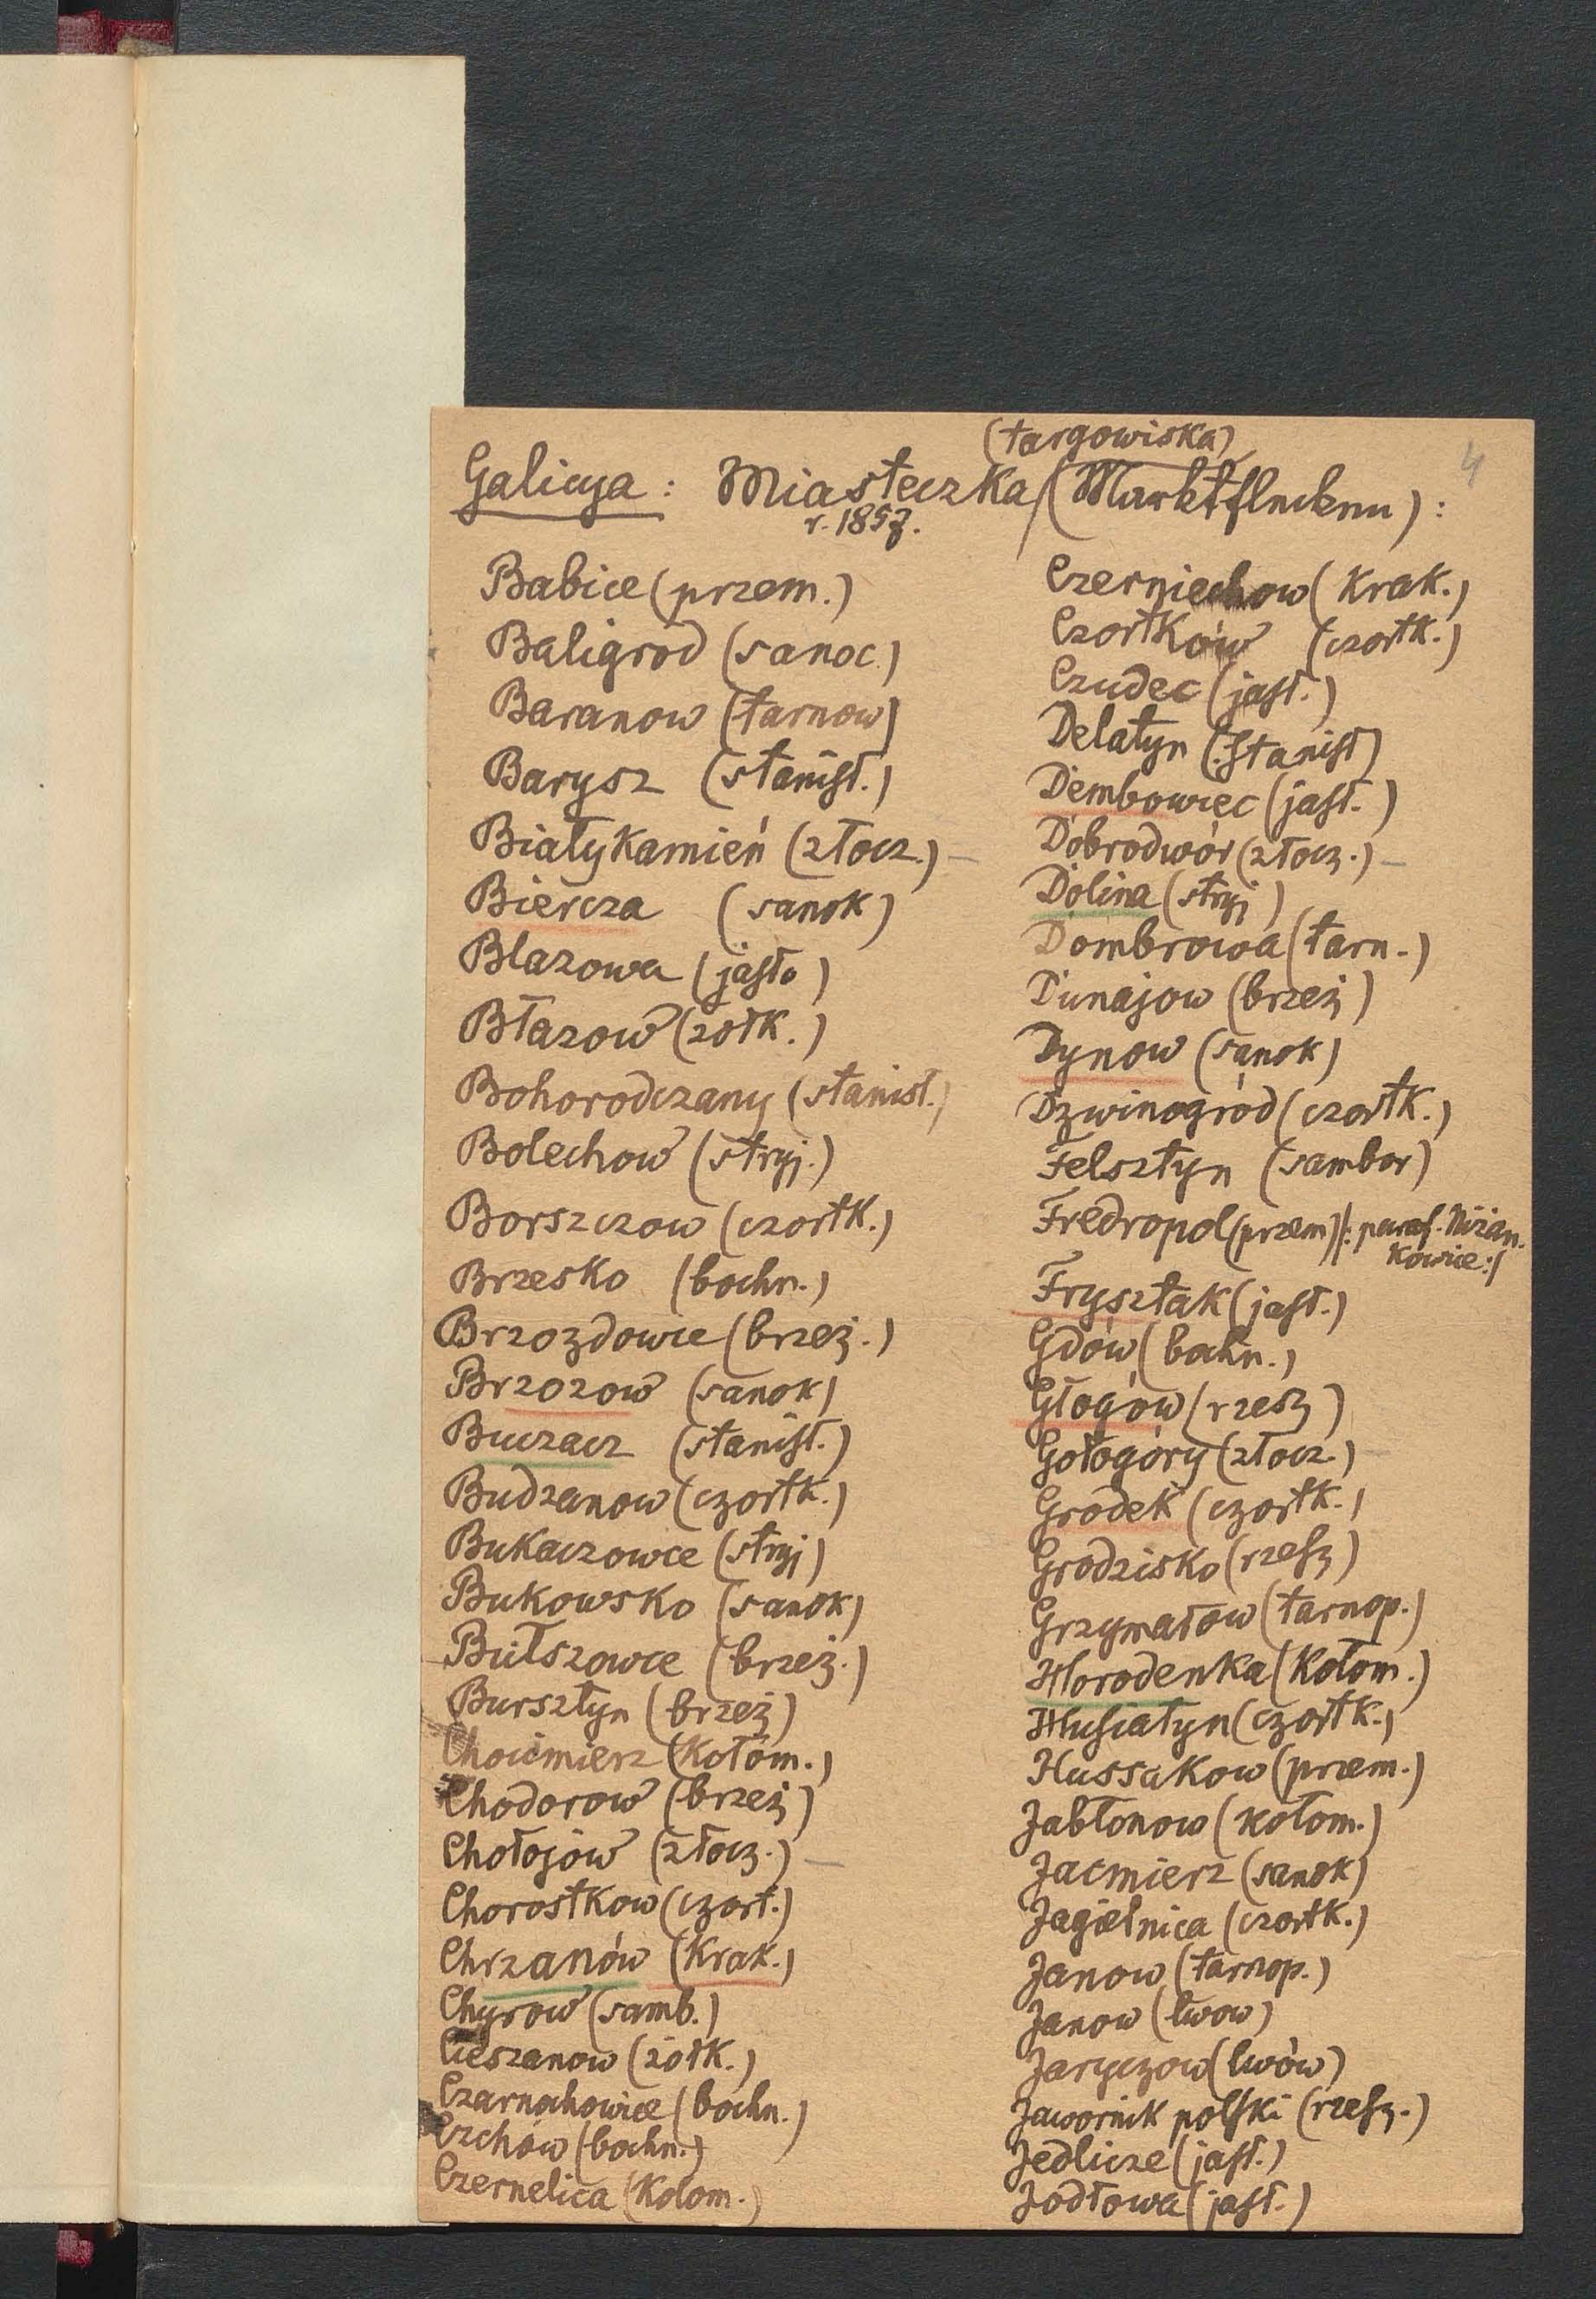 4
(targowiska)
Galicya: Miasteczka (Marktflecken):
r. 1857.
Babice (przem.)
Baligrod (sanoc.)
Baranow (tarnow)
Barysz (stanisł.)
Białykamień (złocz.) –
Biercza (sanok)
Blazowa (jasło)
Błazow (zołk.)
Bohorodczany (stanisł.)
Bolechow (stryj.)
Borszczow (czortk.)
Brzesko (bochn.)
Brzozdowce (breż.)
Brzozow (sanok)
Buczacz (stanisł.)
Budzanow (czortk.)
Bukaczowce (stryj)
Bukowsko (sanok)
Bułszowce (brzeż.)
Bursztyn (brzeż)
Chocimierz (Kołom.)
Chodorow (brzeż)
Chołojów (złocz.) –
Chorostkow (czort.)
Chrzanów (Krak.)
Chyrow (samb.)
Cieszanow (żołk.)
Czarnochowice (bochn.)
Czchów (bochn.)
Czernelica (Kolom.)
Czerniechow (Krak.)
Czortków (czortk.)
Czudec (jasł.)
Delatyn (Stanisł)
Dembowiec (jasł.)
Dobrodwór (złocz.) –
Dolina (stryj)
Dombrowa (tarn.)
Dunajow (brzeż)
Dynow (sanok)
Dzwinogród (czortk.)
Felsztyn (sambor)
Fredropol (przem) /: paraf. Niżan.
kowice :/
Frysztak (jasł.)
Gdów (bochn.)
Głogów (rzesz)
Gołogóry (złocz.) –
Grodek (czortk.)
Grodzisko (rzesz)
Grzymałow (tarnop.)
Horodenka (Kołom.)
Husiatyn (czortk.)
Hussakow (przem.)
Jabłonow (kołom.)
Jacmierz (sanok)
Jagielnica (czortk.)
Janow (tarnop.)
Janow (lwow)
Jaryczow (lwów)
Jawornik polski (rzesz.)
Jedlicze (jasł.)
Jodłowa (jasł.)